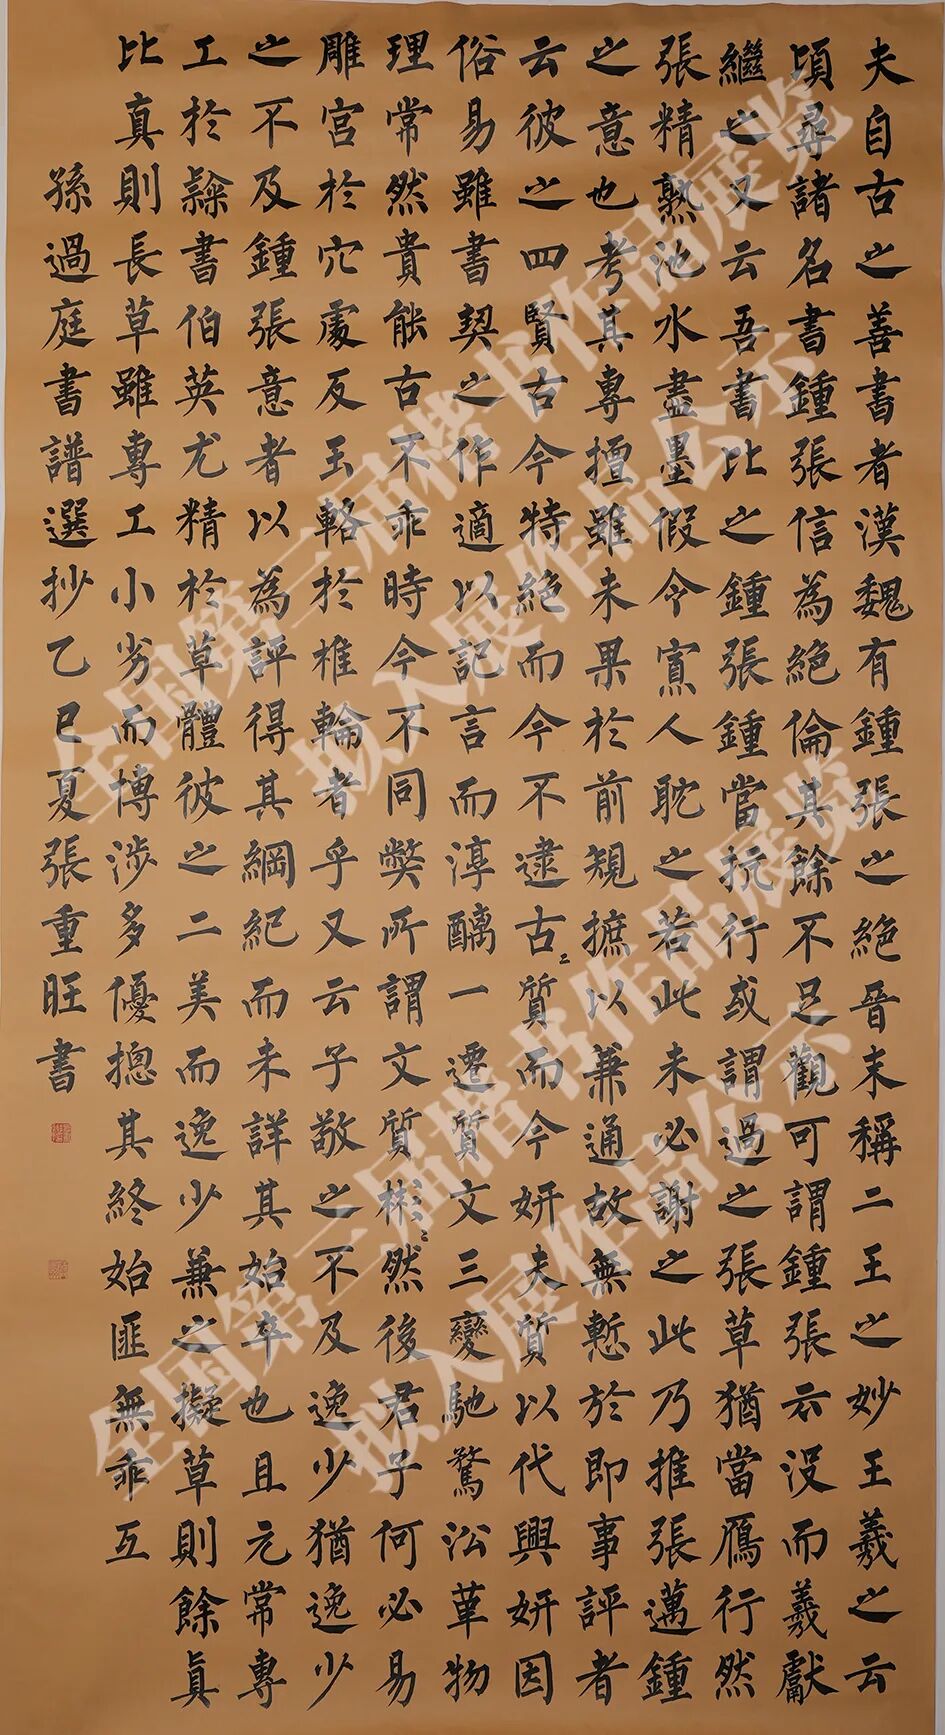 夫自古之善書者漢魏有鍾張之絕晉末稱二王之妙王羲之云
頃尋諸名書鍾張信為絕倫其餘不足觀可謂鍾張云沒而羲獻
繼之又云吾書比之鍾張鍾當抗行或謂過之張草猶當鴈行然
張精熟池水盡墨假令寡人耽之若此未必謝之此乃推張邁鍾
之意也考其專擅雖未果於前規摭以兼通故無慙於即事評者
云彼之四賢古今特絕而今不逮古〻質而今妍夫質以代興妍因
俗易雖書契之作適以記言而淳醨一遷質文三變馳騖沿革物
理常然貴能古不乖時今不同弊所謂文質彬〻然後君子何必易
雕宮於穴處反玉輅於椎輪者乎又云子敬之不及逸少猶逸少
之不及鍾張意者以為評得其綱紀而未詳其始卒也且元常專
工於隸書伯英尤精於草體彼之二美而逸少兼之擬草則餘真
比真則長草雖專工小劣而博涉多優摠其終始匪無乖互
孫過庭書譜選抄乙巳夏張重旺書
全国第三届楷书作品展览
拟入展作品公示
全国第三届楷书作品展览
拟入展作品公示